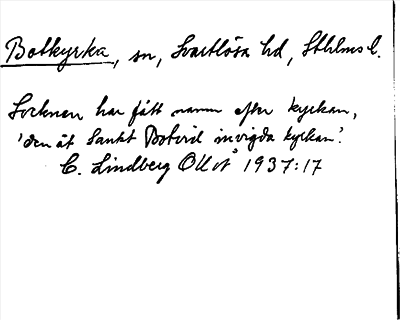 Botkyrka, sn, Svartlösa hd, Sthlms l.
Socknen har fått namn efter kyrkan,
'den åt Sankt Botvid invigda kyrkan'.
C. Lindberg OUÅ 1937:17